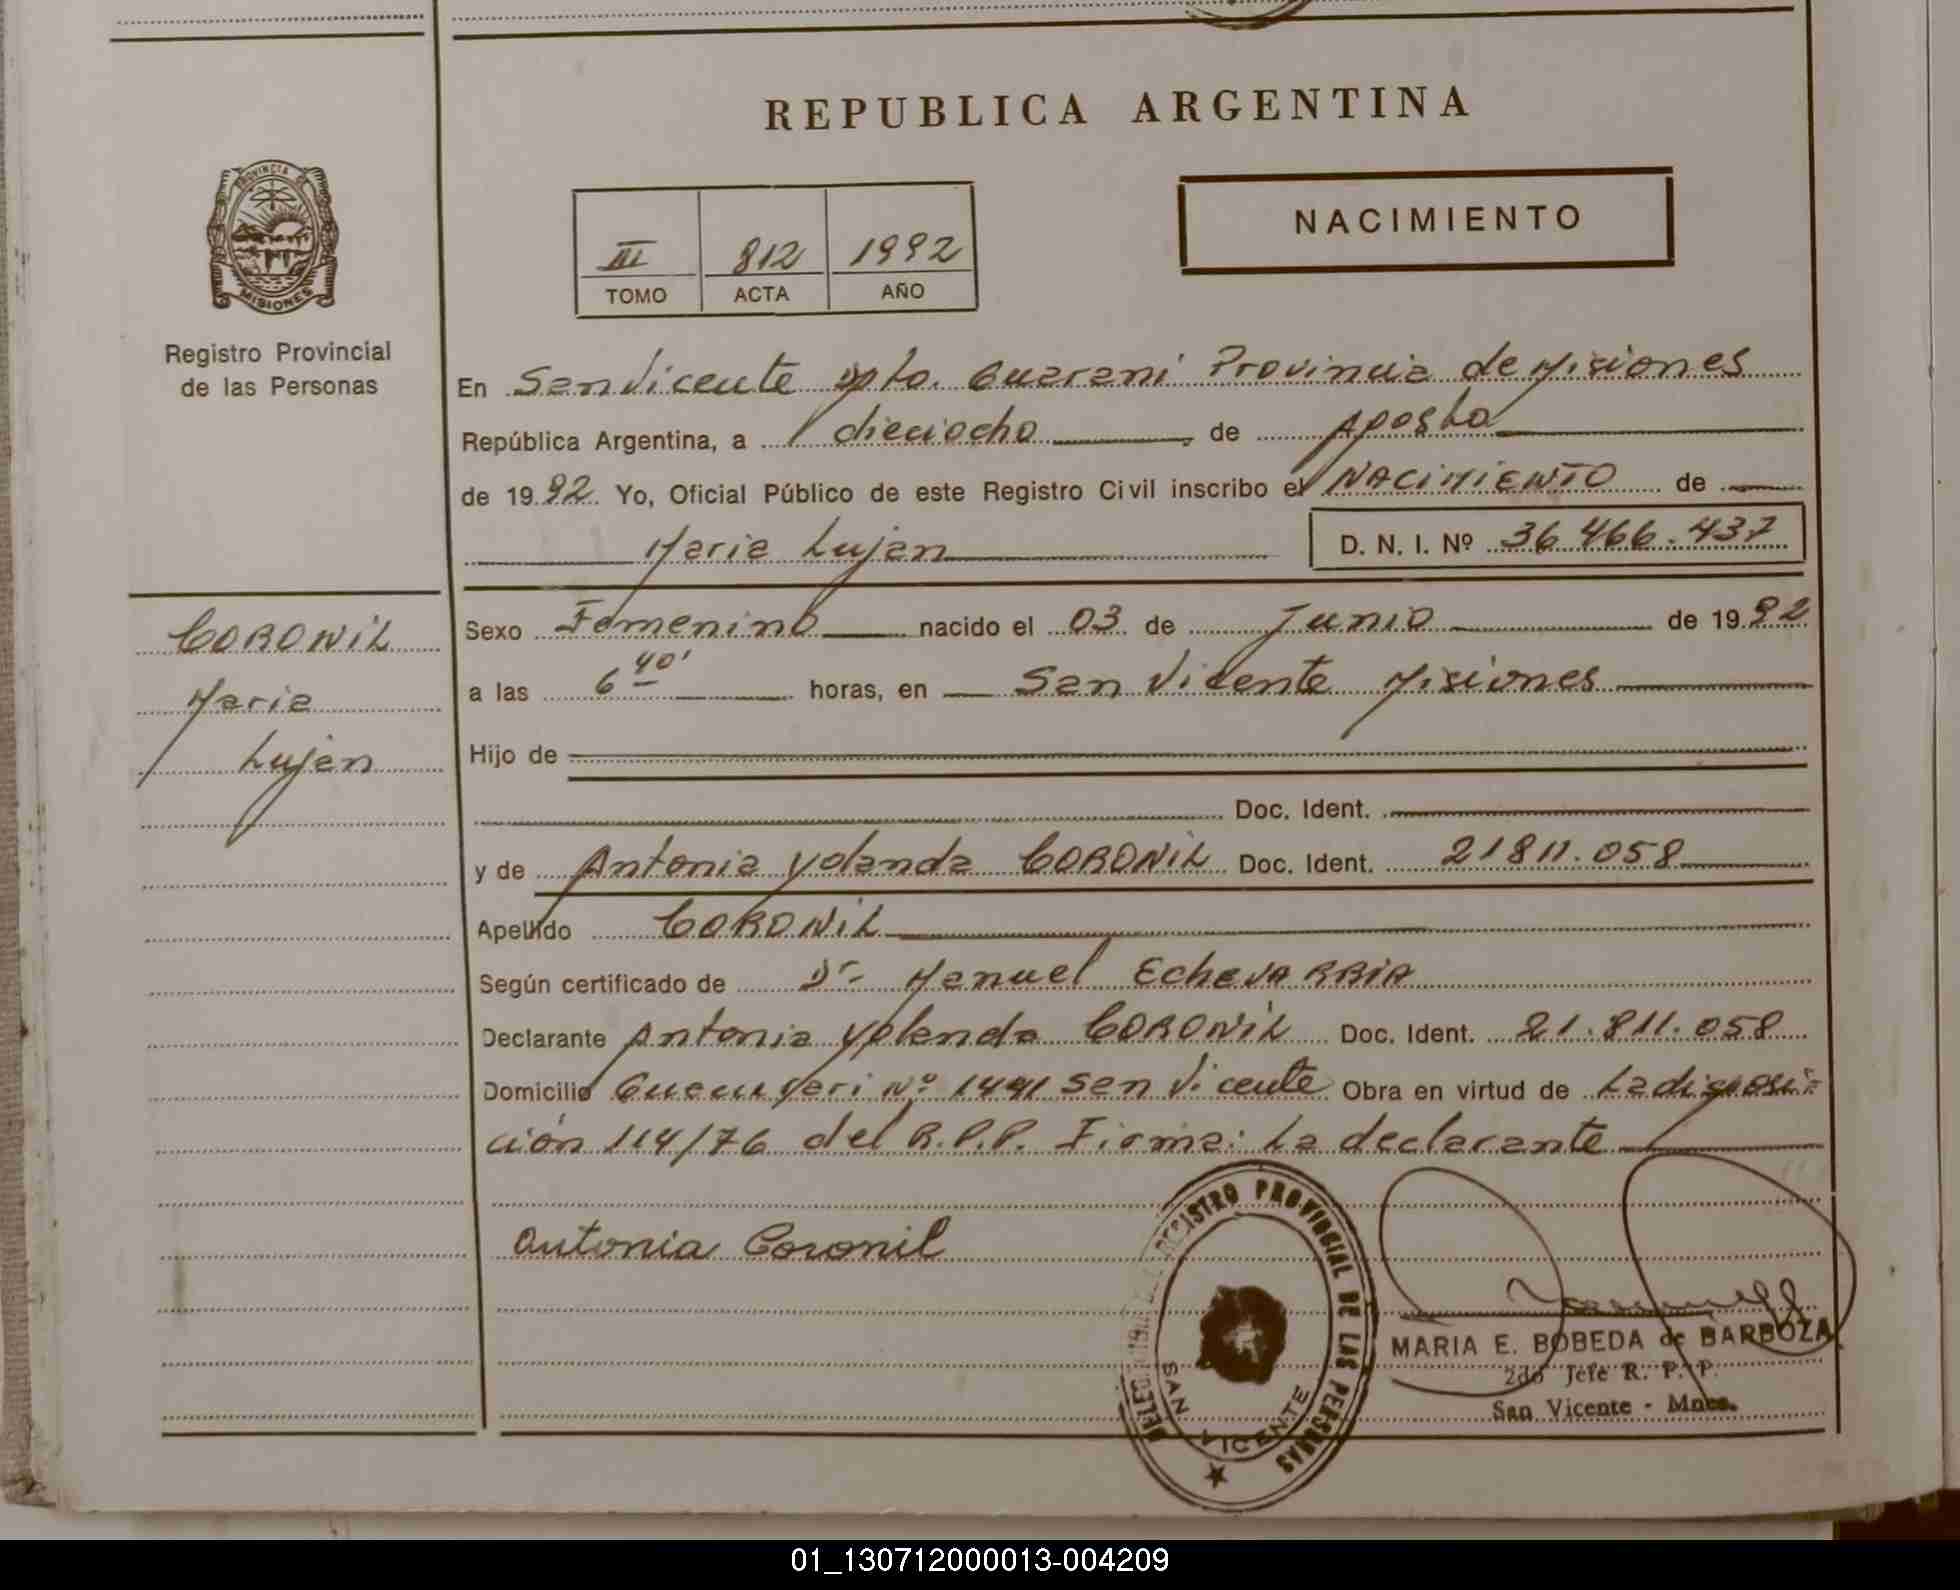 REPUBLICA ARGENTINA
PROVINCIA DE
MISIONES
Registro Provincial
de las Personas
NACIMIENTO
III 812 1992
TOMO ACTA AÑO
En San Vicente Dpto. Guarani Provincia de Misiones
República Argentina, a dieciocho de Agosto
de 1992 Yo, Oficial Público de este Registro Civil inscribo el NACIMIENTO de
Maria Lujan D. N. I. Nº 36.466.437
CORONIL
Maria
Lujan
Sexo Femenino nacido el 03 de Junio de 1992
a las 6 40' horas, en San Vicente Misiones
Hijo de
Doc. Ident.
y de Antonia Yolanda CORONIL Doc. Ident. 21811.058
Apellido CORONIL
Según certificado de Dr. Manuel EcheVARRIA
Declarante Antonia Yolanda CORONIL Doc. Ident. 21.811.058
Domicilio Nº 1441 San Vicente Obra en virtud de La disposi-
ción 114/76 del R.P.P. Firma: La declarante
Antonia Coronil
REGISTRO PROVINCIAL DE LAS PERSONAS
SAN VICENTE
MARIA E. BOBEDA de BARBOZA
2do Jefe R. P. P.
San Vicente - Mnes.
01_130712000013-004209